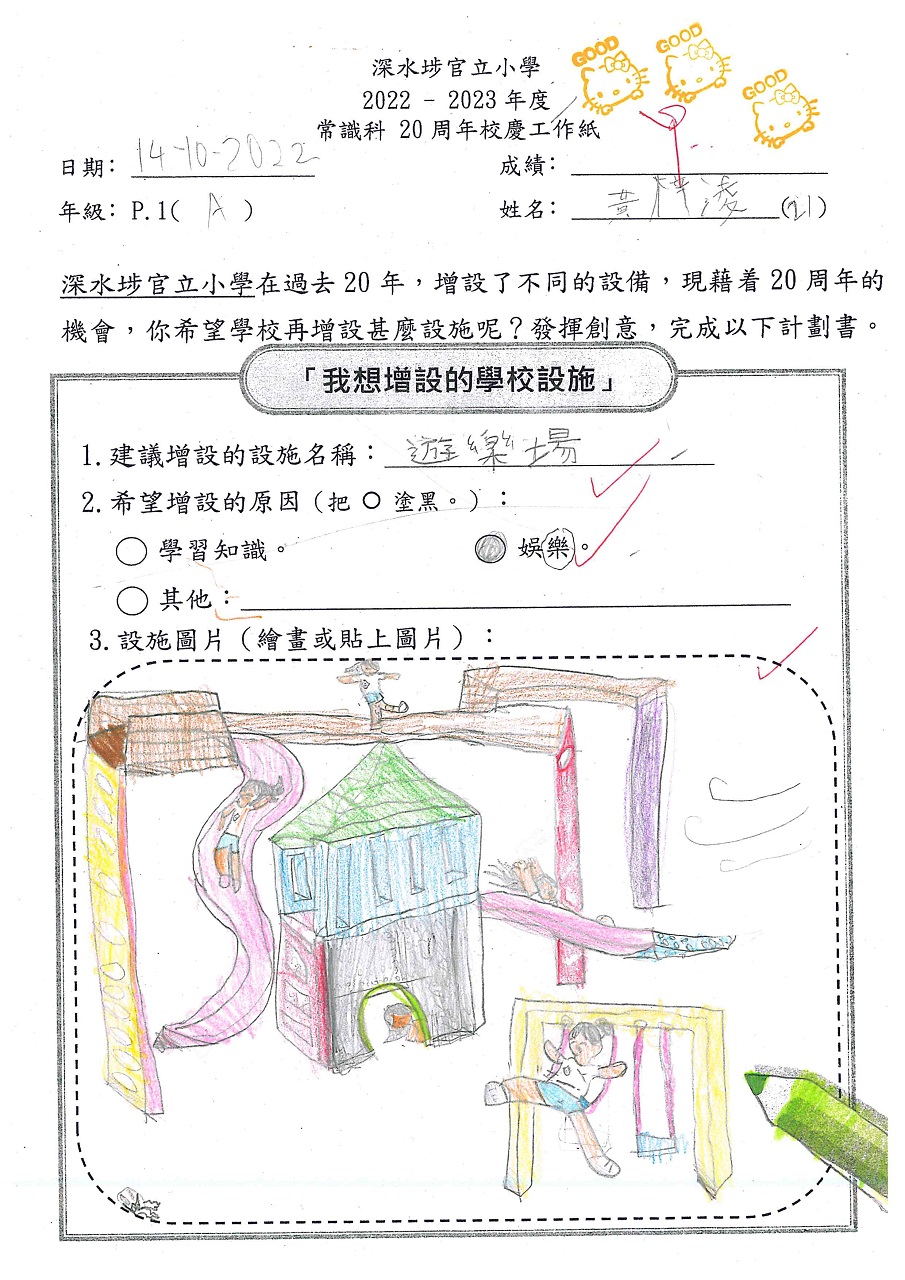 深水埗官立小學
2022 - 2023 年度
常識科 20 周年校慶工作紙
GOOD
GOOD
GOOD
日期: 14-10-2022
成績:
年級: P.1( A )
姓名: 黃 凌 (21)
深水埗官立小學在過去 20 年，增設了不同的設備，現藉着 20 周年的
機會，你希望學校再增設甚麼設施呢？發揮創意，完成以下計劃書。
「我想增設的學校設施」
1. 建議增設的設施名稱：遊樂場
2. 希望增設的原因（把 ○ 塗黑。）：
學習知識。
娛樂。
其他：
3. 設施圖片（繪畫或貼上圖片）：